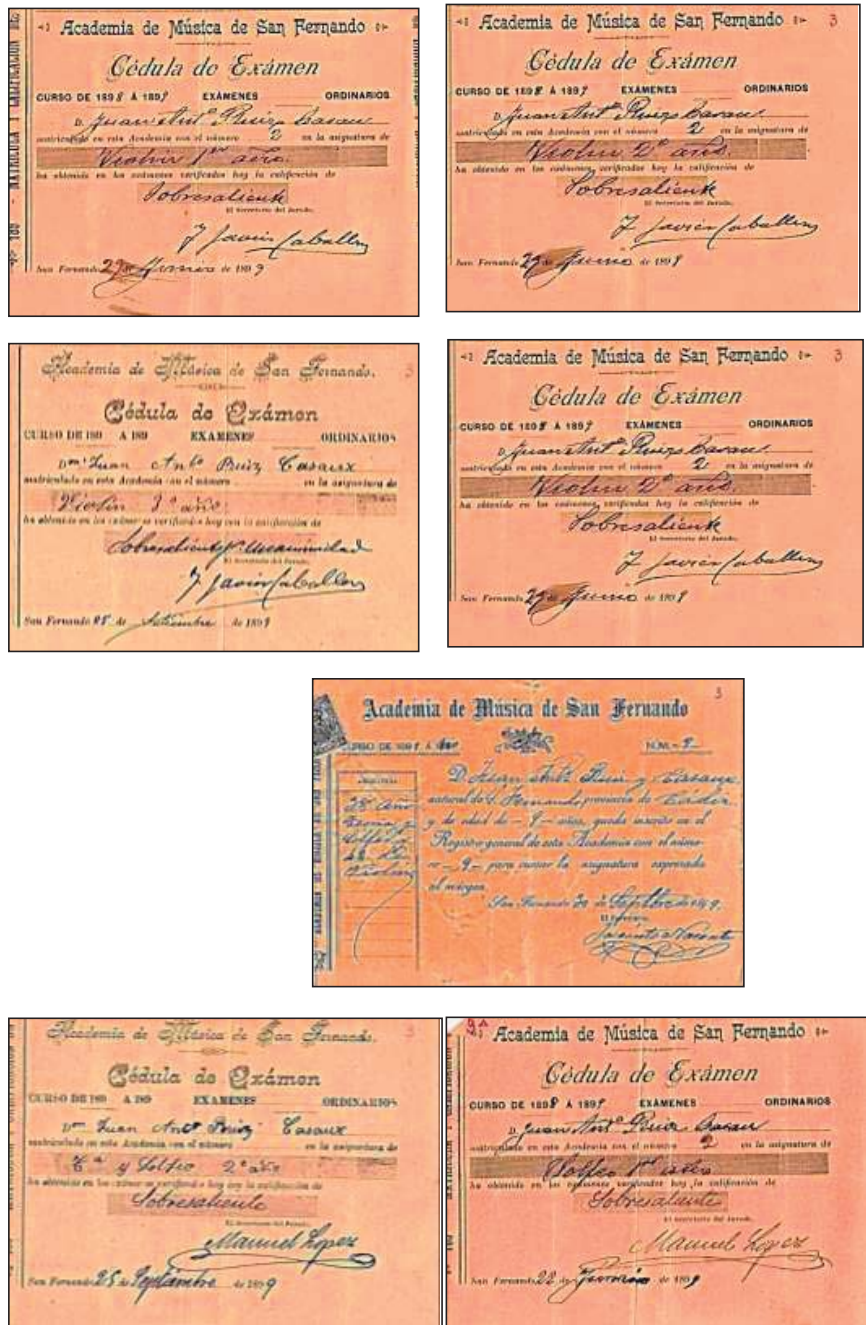 Academia de Música de San Fernando
Cédula de Exámen
CURSO DE 1898 Á 1899 EXÁMENES ORDINARIOS
D. Juan Antº Ruiz Casau
matriculado en esta Academia con el número 2 en la asignatura de
Violin 1er año.
ha obtenido en los exámenes verificados hoy la calificación de
Sobresaliente
El Secretario del Jurado,
J Javier Caballero
San Fernando 29 de de 1899
Academia de Música de San Fernando 3
Cédula de Exámen
CURSO DE 1898 Á 1899 EXÁMENES ORDINARIOS
D. Juan Antº Ruiz Casau
matriculado en esta Academia con el número 2 en la asignatura de
Violin 2º año.
ha obtenido en los exámenes verificados hoy la calificación de
Sobresaliente
El Secretario del Jurado,
J Javier Caballero
San Fernando 29 de Junio de 1899
Academia de Música de San Fernando. 3
Cédula de Exámen
CURSO DE 189 A 189 EXAMENES ORDINARIOS
Dn Juan Antº Ruiz Casaux
matriculado en esta Academia con el número en la asignatura de
Violin 3º año.
ha obtenido en los exámenes verificados hoy con la calificación de
Sobresaliente pr Unanimidad
El Secretario del Jurado,
J Javier Caballero
San Fernando 25 de Setiembre de 1899
Academia de Música de San Fernando 3
Cédula de Exámen
CURSO DE 1898 Á 1899 EXÁMENES ORDINARIOS
D. Juan Antº Ruiz Casau
matriculado en esta Academia con el número 2 en la asignatura de
Violin 2º año.
ha obtenido en los exámenes verificados hoy la calificación de
Sobresaliente
El Secretario del Jurado,
J Javier Caballero
San Fernando 29 de Junio de 1899
Academia de Música de San Fernando 3
CURSO DE 1899 Á NÚM.
D. Juan Antº Ruiz y Casaux
natural de S. Fernando, provincia de Cádiz
y de edad de - 9 - años, queda inscrito en el
Registro general de esta Academia con el núme-
ro - 9 - para cursar la asignatura expresada
al márgen.
San Fernando 30 de Septbre de 1899.
El Secretario,
año
Solfeo
Violin
Academia de Música de San Fernando. 3
Cédula de Exámen
CURSO DE 189 A 189 EXAMENES ORDINARIOS
Dn Juan Antº Ruiz Casaux
matriculado en esta Academia con el número en la asignatura de
Tª y Solfeo 2º año
ha obtenido en los exámenes verificados hoy la calificación de
Sobresaliente
El Secretario del Jurado,
Manuel Lopez
San Fernando 25 de Septiembre de 1899
Academia de Música de San Fernando
Cédula de Exámen
CURSO DE 1898 Á 1899 EXÁMENES ORDINARIOS
D. Juan Antº Ruiz Casau
matriculado en esta Academia con el número 2 en la asignatura de
Solfeo 1er año
ha obtenido en los exámenes verificados hoy la calificación de
Sobresaliente
El Secretario del Jurado,
Manuel Lopez
San Fernando 22 de de 1899